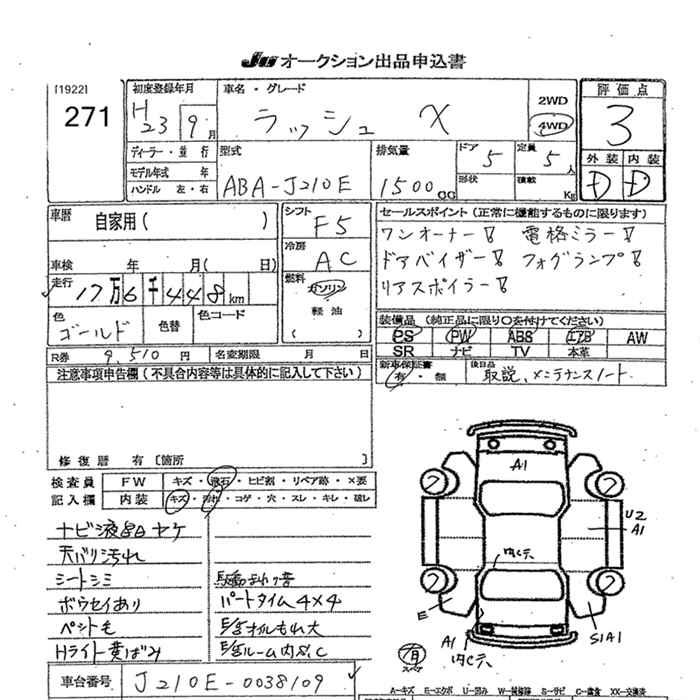 JU オークション出品申込書
[1922]
271
初度登録年月
H23 9月
車名・グレード
ラッシュ X
2WD
4WD
評価点
3
外装 内装
D D
ディーラー・並行
モデル年式 年
ハンドル 左・右
型式
ABA-J210E
排気量
1500cc
ドア 5
形状
定員 5人
積載 Kg
車歴 自家用( )
車検 年 月( 日)
走行 17万6千448km
色 ゴールド
色替
色コード
シフト F5
冷房 AC
燃料 ガソリン
軽油
( )
セールスポイント(正常に機能するものに限ります)
ワンオーナー! 電格ミラー!
ドアバイザー! フォグランプ!
リアスポイラー!
装備品(純正品に限り○を付けてください)
PS PW ABS エアB AW
SR ナビ TV 本革
R券 9,510円
名変期限 月 日
新車保証書 有・無
後日品 取説、メンテナンスノート
注意事項申告欄(不具合内容等は具体的に記入して下さい)
修復歴 有〔箇所 〕
検査員記入欄
FW キズ・飛石・ヒビ割・リペア跡・×要
内装 キズ・汚れ・コゲ・穴・スレ・キレ・破レ
ナビ液晶ヤケ
天バリ汚れ
シートシミ
ボウセイあり
ペット毛
Hライト黄ばみ
駆動まわり音
パートタイム4×4
オイルもれ大
ルーム内
A1
U2
A1
E
A1
S1A1
有
スペア
車台番号 J210E-0038109
A-キズ E-エクボ U-凹み W-補修跡 S-サビ C-腐食 XX-交換済